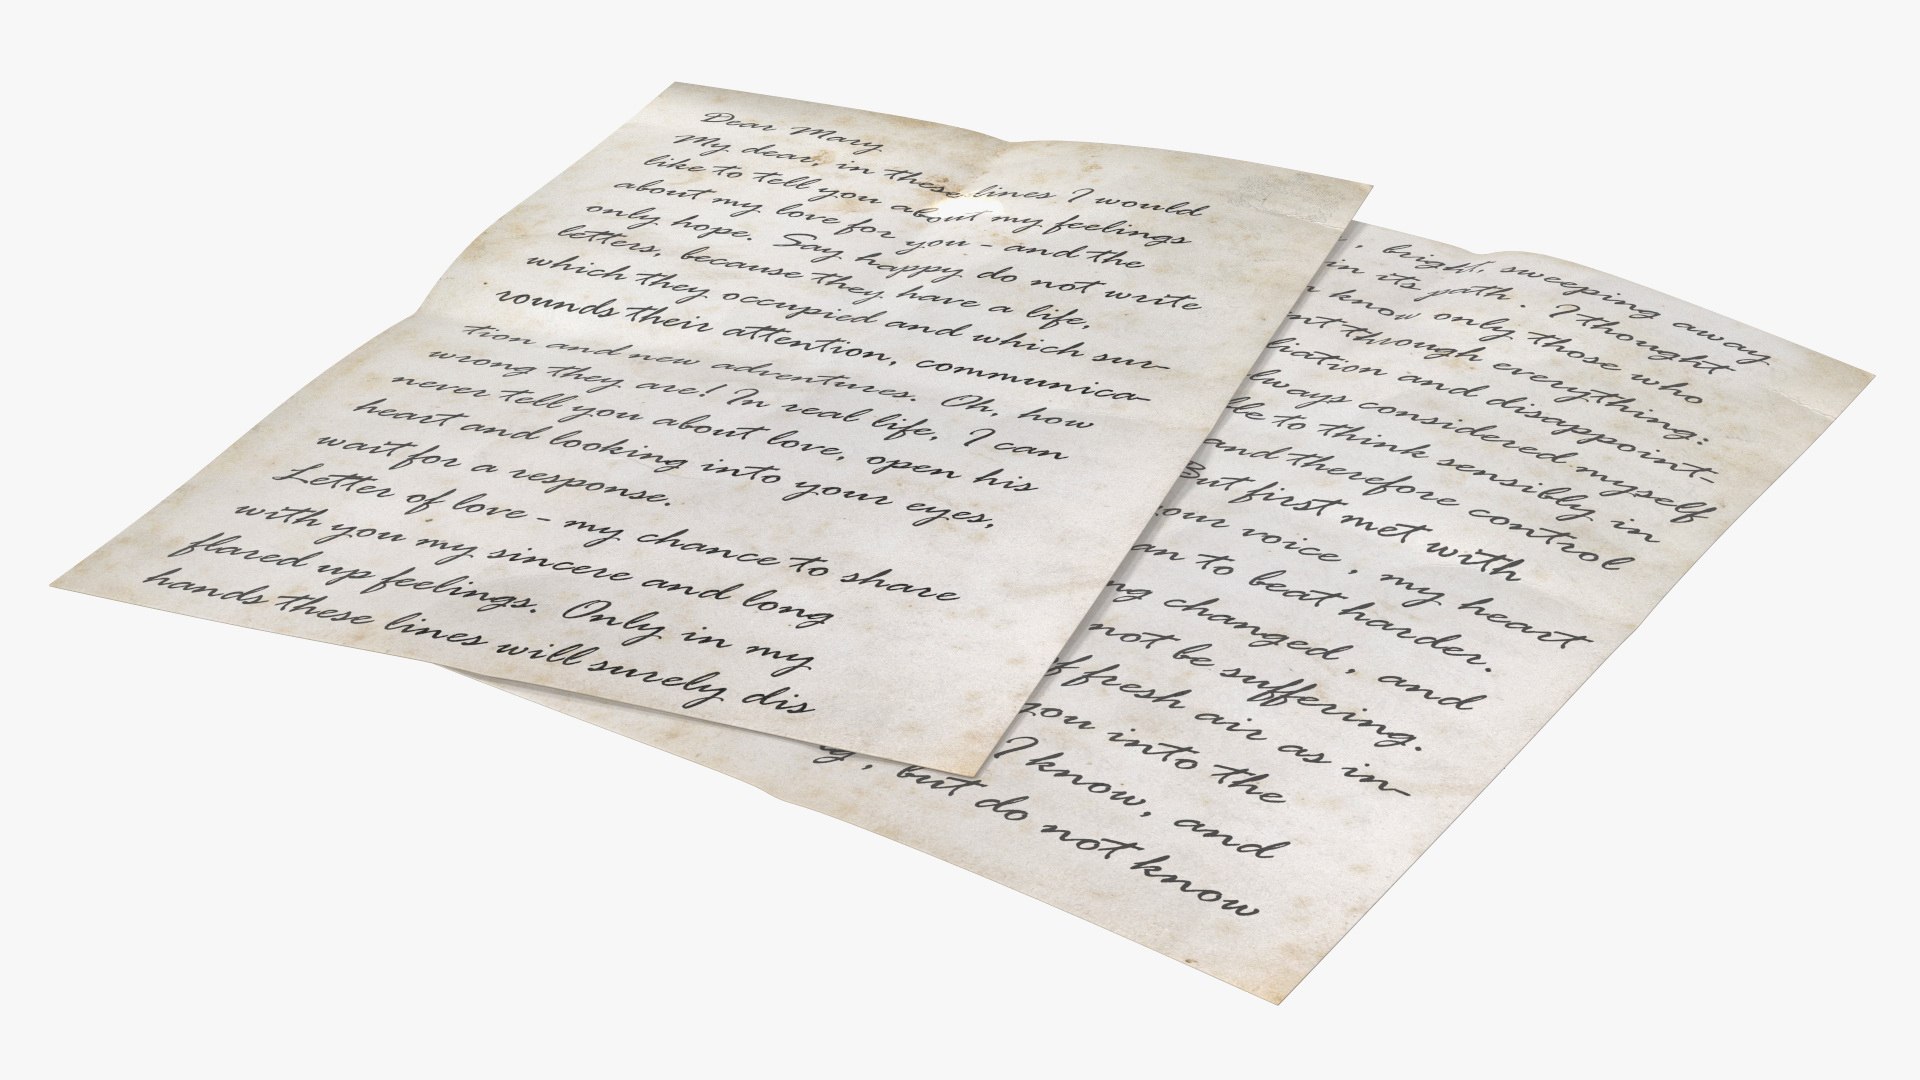 Dear Mary
My dear, in these lines I would
like to tell you about my feelings
about my love for you - and the
only hope. Say happy do not write
letters, because they have a life,
which they occupied and which sur-
rounds their attention, communica-
tion and new adventures. Oh, how
wrong they are! In real life, I can
never tell you about love, open his
heart and looking into your eyes,
wait for a response.
Letter of love - my chance to share
with you my sincere and long
flared up feelings. Only in my
hands these lines will surely dis
, bright, sweeping away
in its path. I thought
know only those who
nt through everything:
liation and disappoint-
lways considered myself
le to think sensibly in
and therefore control
But first met with
our voice, my heart
an to beat harder.
ng changed, and
not be suffering.
f fresh air as in-
you into the
I know, and
, but do not know